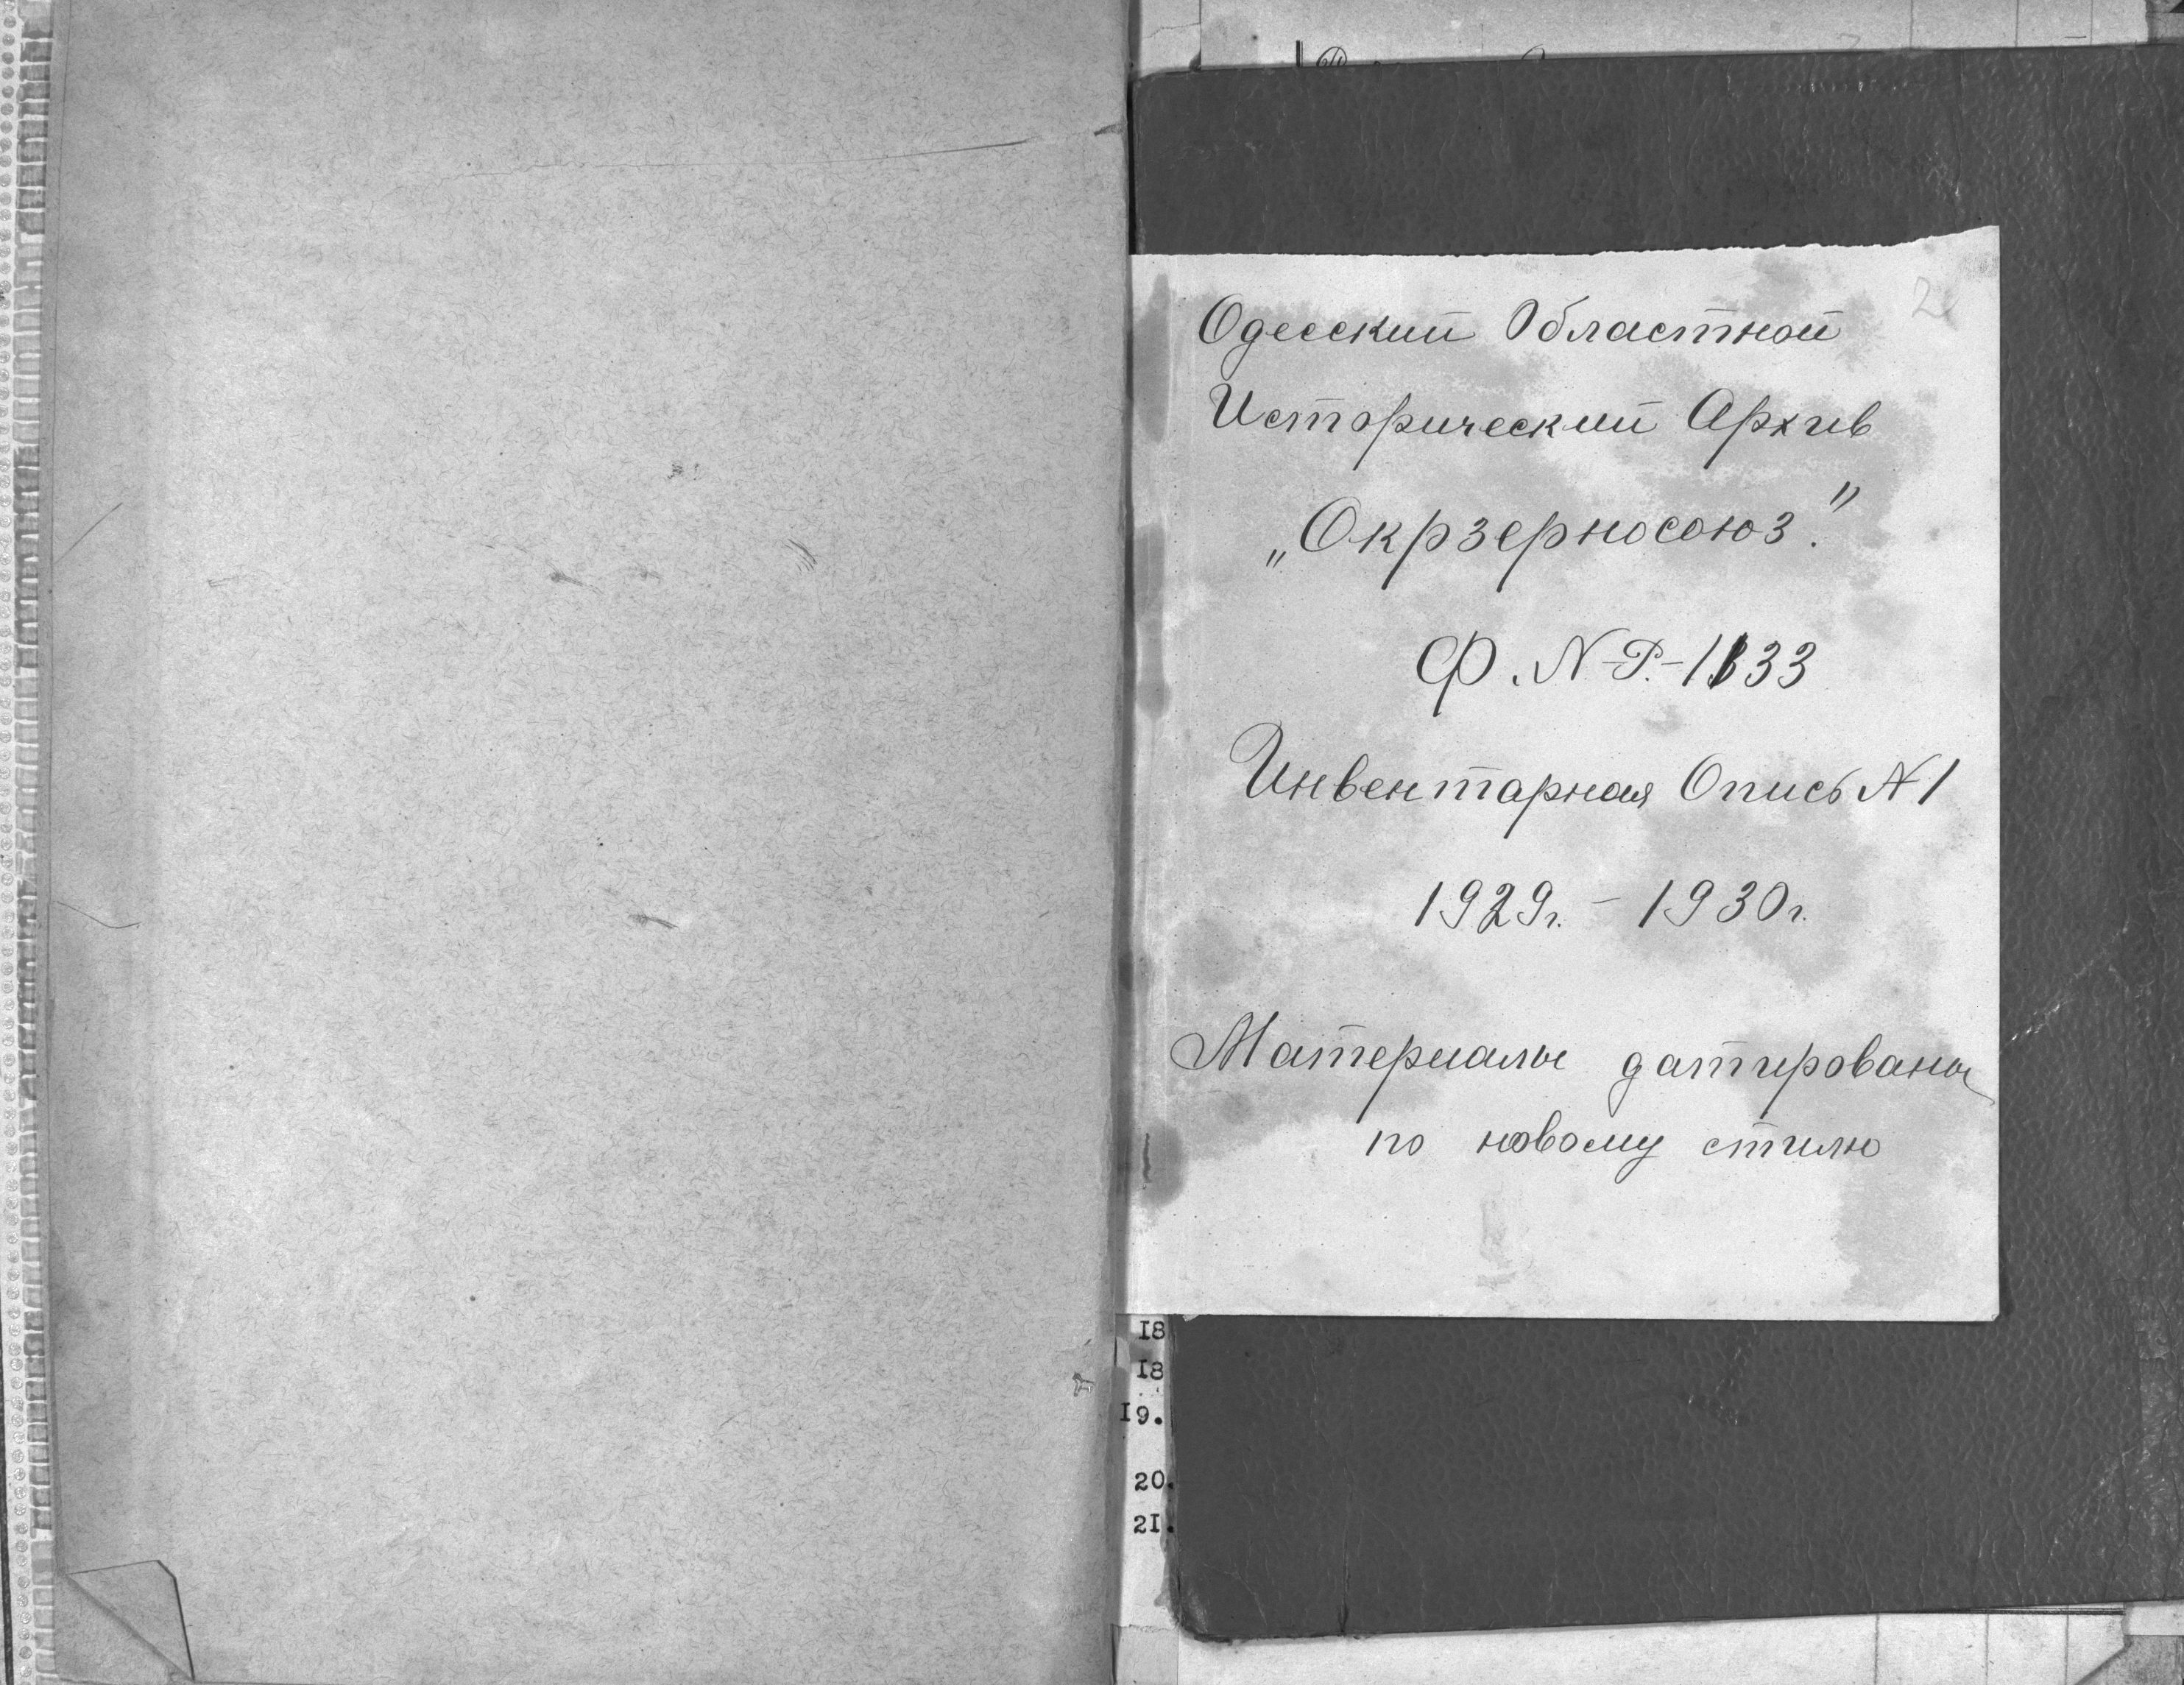 2
Одесский Областной
Исторический Архив
„Окрзерносоюз."
Ф. N-Р.-1133
Инвентарная Опись N 1
1929г. - 1930г.
Материалы датированы
по новому стилю
18
18
19.
20.
21.